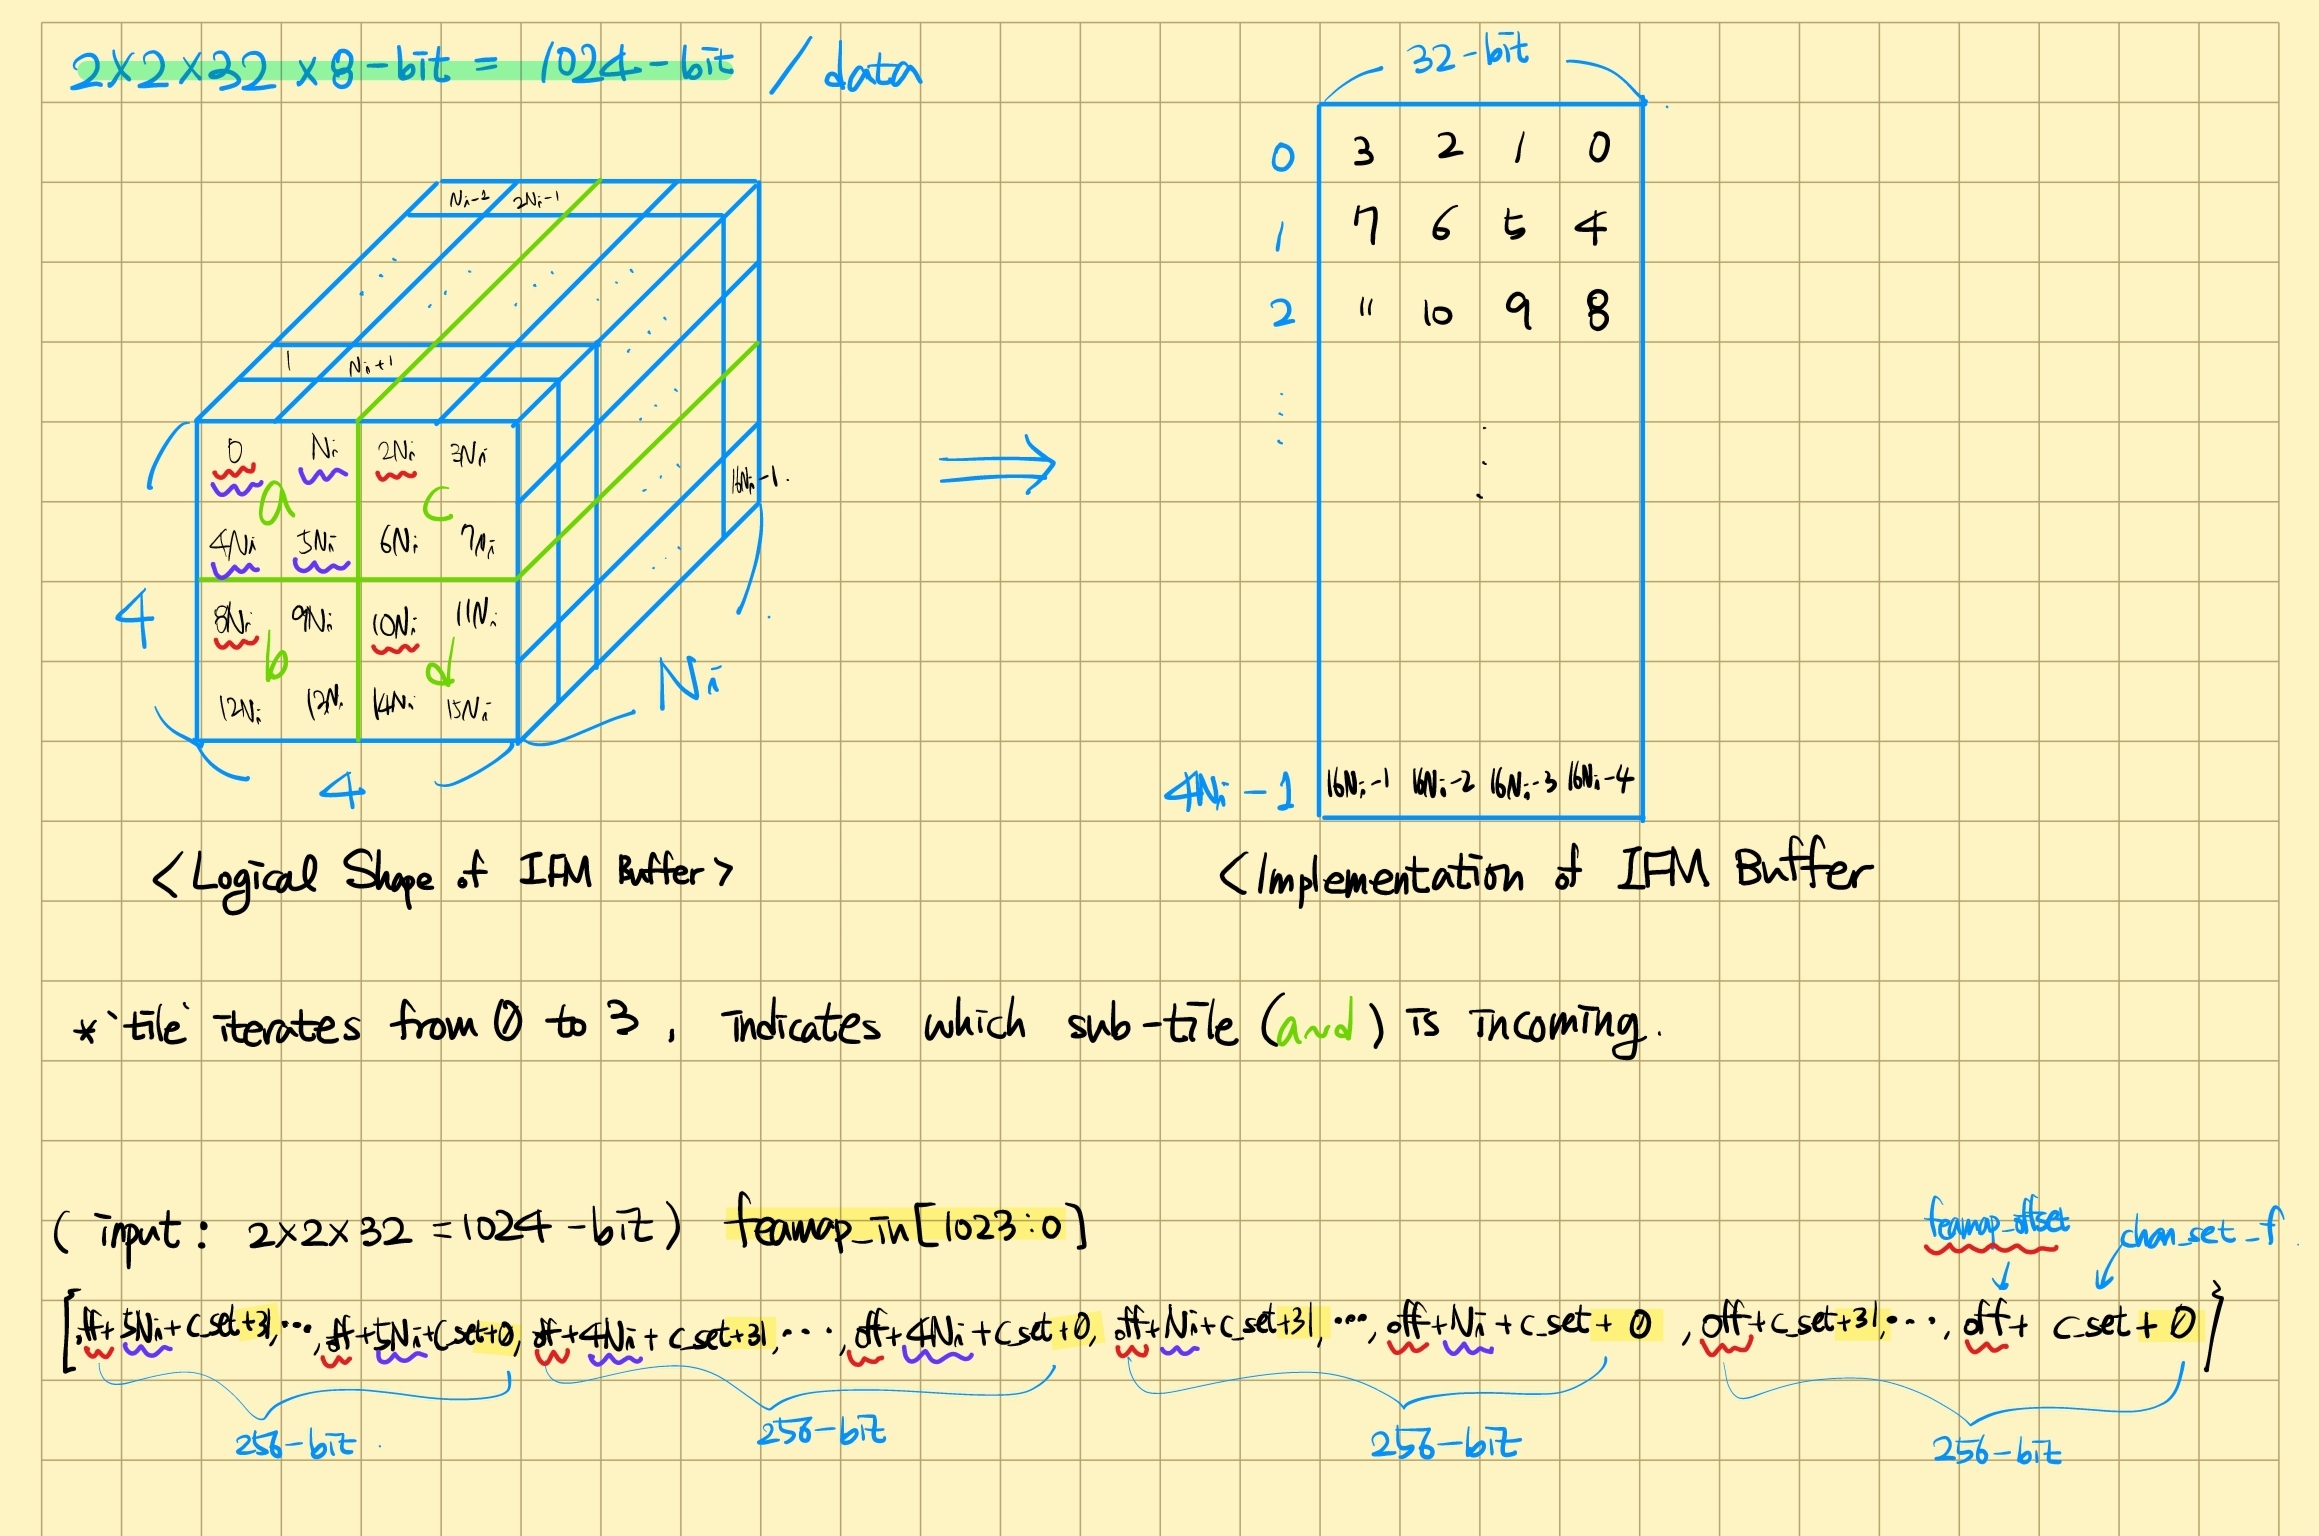 2×2×32 ×8-bit = 1024-bit / data
32-bit
0 3 2 1 0
1 7 6 5 4
2 11 10 9 8
Ni-1 2Ni-1
1 Ni+1
0 Ni 2Ni 3Ni
a c
4Ni 5Ni 6Ni 7Ni
16Ni-1
8Ni 9Ni 10Ni 11Ni
b d
12Ni 13Ni 14Ni 15Ni
4
4
Ni
4Ni-1 16Ni-1 16Ni-2 16Ni-3 16Ni-4
<Logical Shape of IFM Buffer>
<Implementation of IFM Buffer
* `tile` iterates from 0 to 3, indicates which sub-tile (a~d) is incoming.
(input: 2×2×32 = 1024-bit) feamap_in[1023:0]
feamap_offset chan_set_f
[off+5Ni+c_set+31, ..., off+5Ni+c_set+0, off+4Ni+c_set+31, ..., off+4Ni+c_set+0, off+Ni+c_set+31, ..., off+Ni+c_set+0, off+c_set+31, ..., off+c_set+0]
256-bit 256-bit 256-bit 256-bit